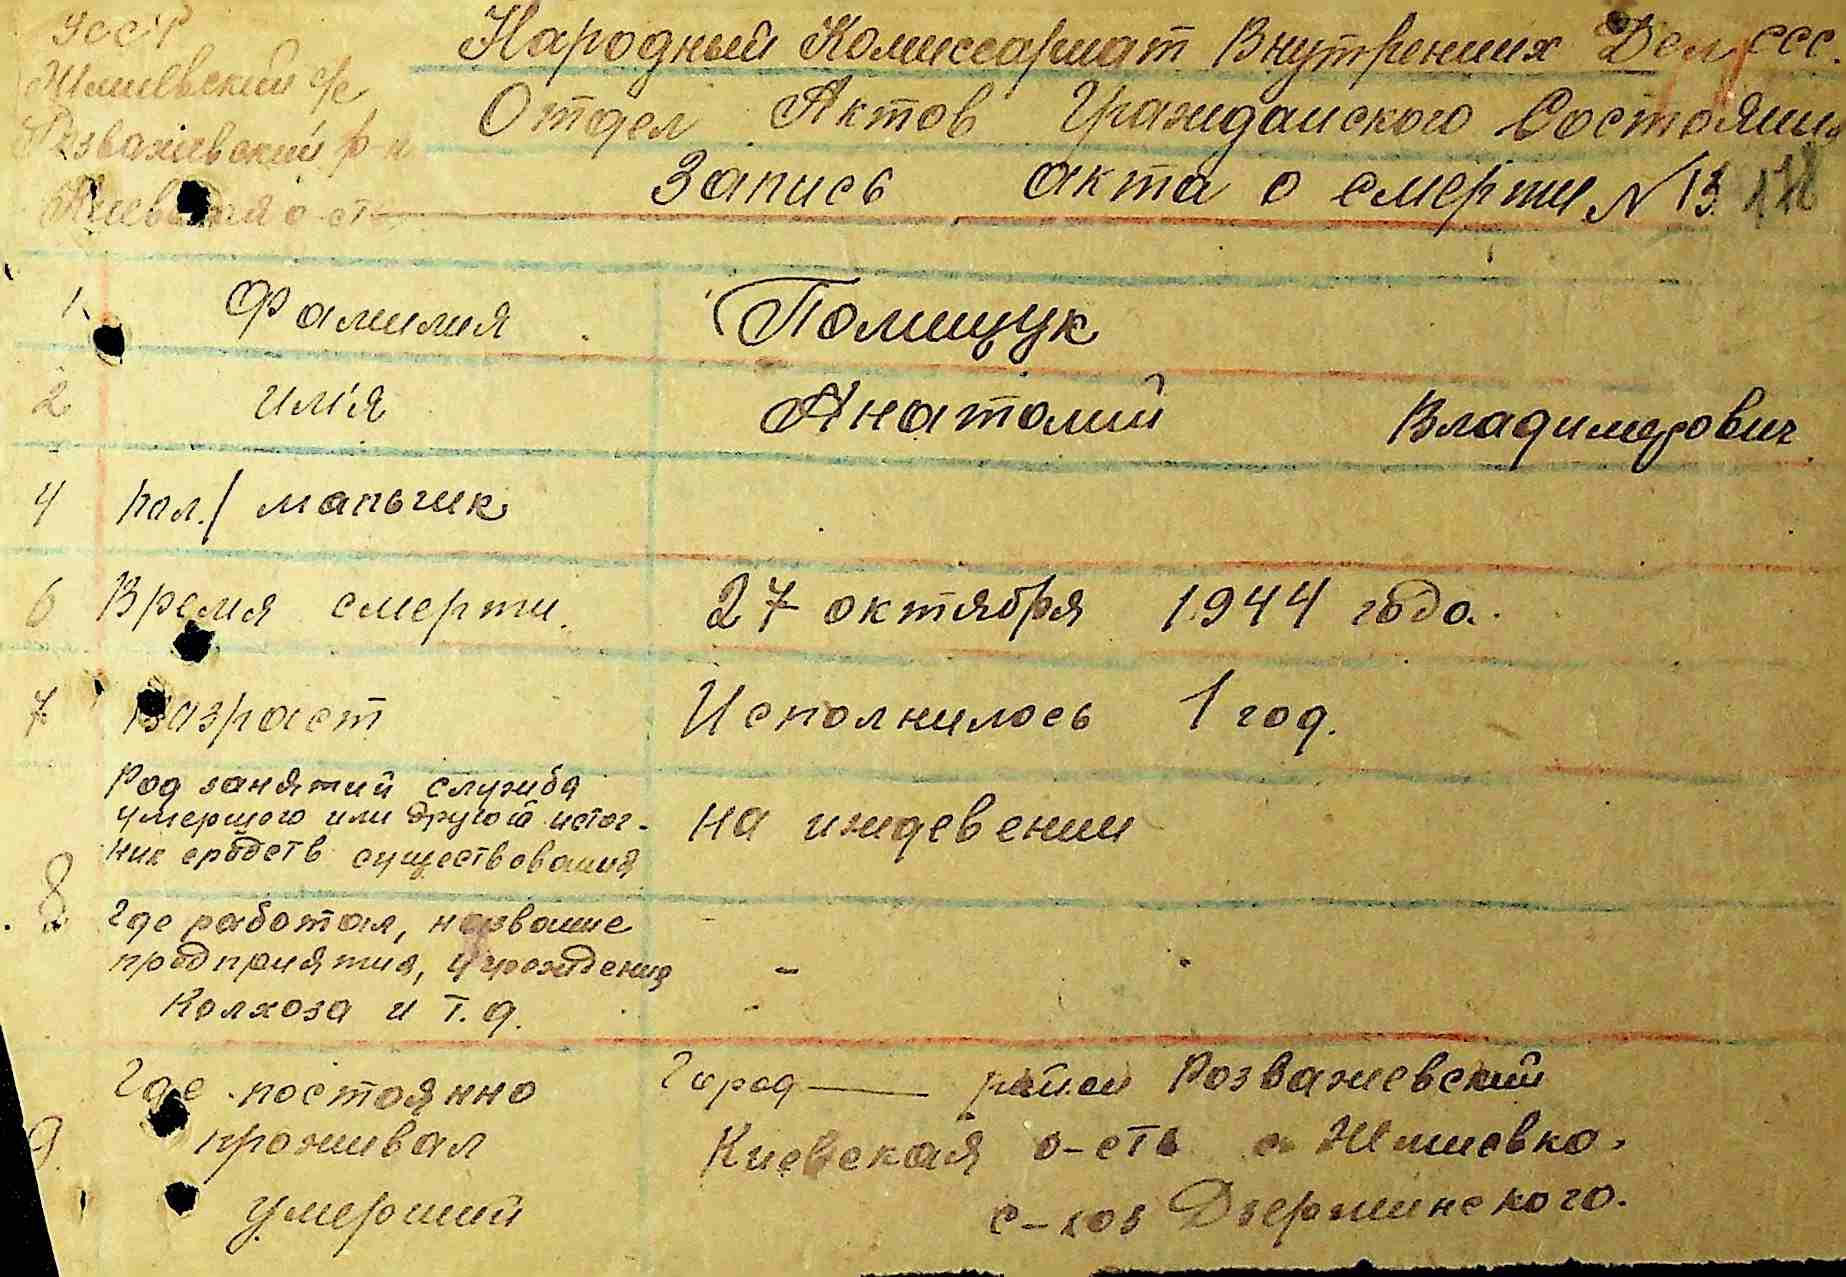 УССР
Жмиевский с/с
Розважевский р-н
Киевская о-сть
Народный Комиссариат Внутренних Дел ССС
Отдел Актов Гражданского Состояния
Запись акта о смерти N 13
1 Фамилия Полищук
2 имя Анатолий Владимирович
4 пол./ мальчик
6 Время смерти. 27 октября 1944 года.
7 Вазраст Исполнилось 1 год.
Род занятий служба
умершого или другой источ-
ник средств существования
на иждевении
8 Где работал, название
предприятия, учреждения
Колхоза и т.д.
-
9. Где постоянно
проживал
умерший
Город — район Розважевский
Киевская о-сть с. Жмиевка.
с-хоз Дзержинского.